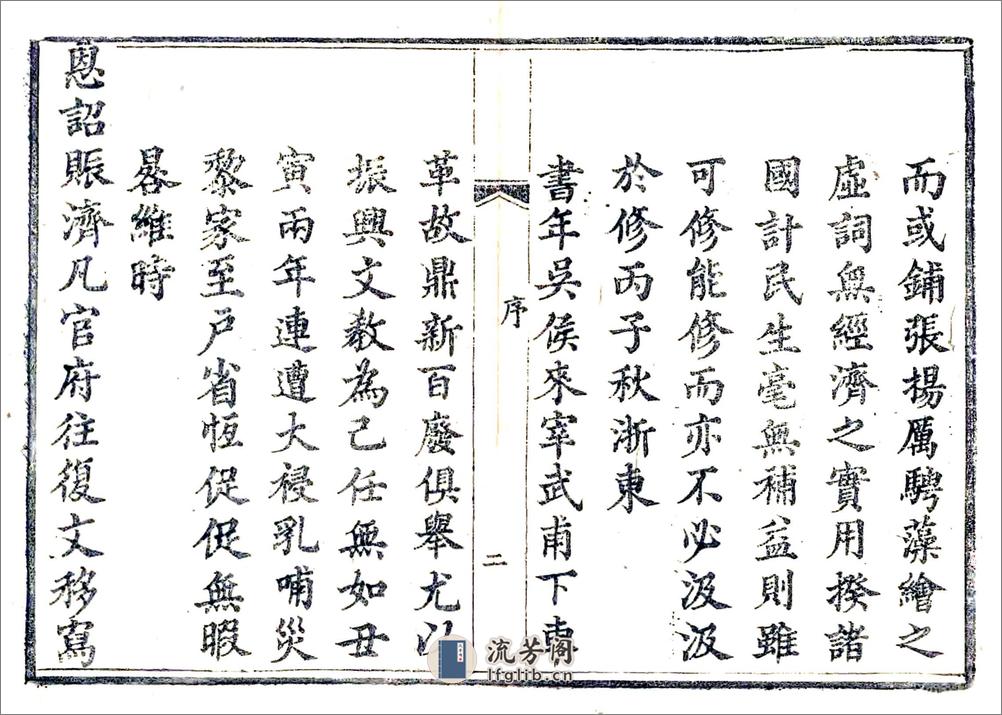 而或鋪張揚厲騁藻繪之
虛詞無經濟之實用揆諸
國計民生毫無補益則雖
可修能修而亦不必汲汲
於修丙子秋浙東
書年吳侯來宰武甫下車
序
二
革故鼎新百廢俱舉尤以
振興文教為己任無如丑
寅兩年連遭大祲乳哺災
黎家至戶省恆促促無暇
晷維時
恩詔賑濟凡官府往復文移寫
流芳阁
lfglib.cn